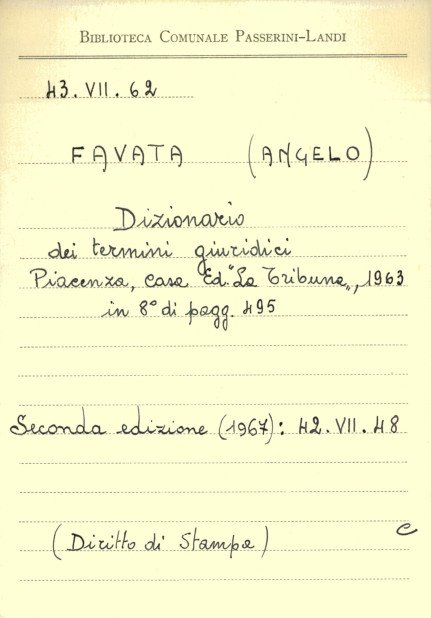 BIBLIOTECA COMUNALE PASSERINI-LANDI
43.VII.62
FAVATA (ANGELO)
Dizionario
dei termini giuridici
Piacenza, casa Ed. "La Tribuna", 1963
in 8° di pagg. 495
Seconda edizione (1967): 42.VII.48
(Diritto di Stampa) C